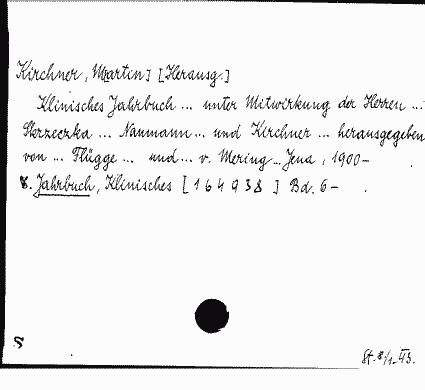 Kirchner, Martin] [Herausg.]
Klinisches Jahrbuch ... unter Mitwirkung der Herren ...
Skrzeczka ... Naumann ... und Kirchner ... herausgegeben
von ... Flügge ... und ... v. Mering ... Jena, 1900-
s. Jahrbuch, Klinisches [164938] Bd. 6-
S
St. 8/1. 43.